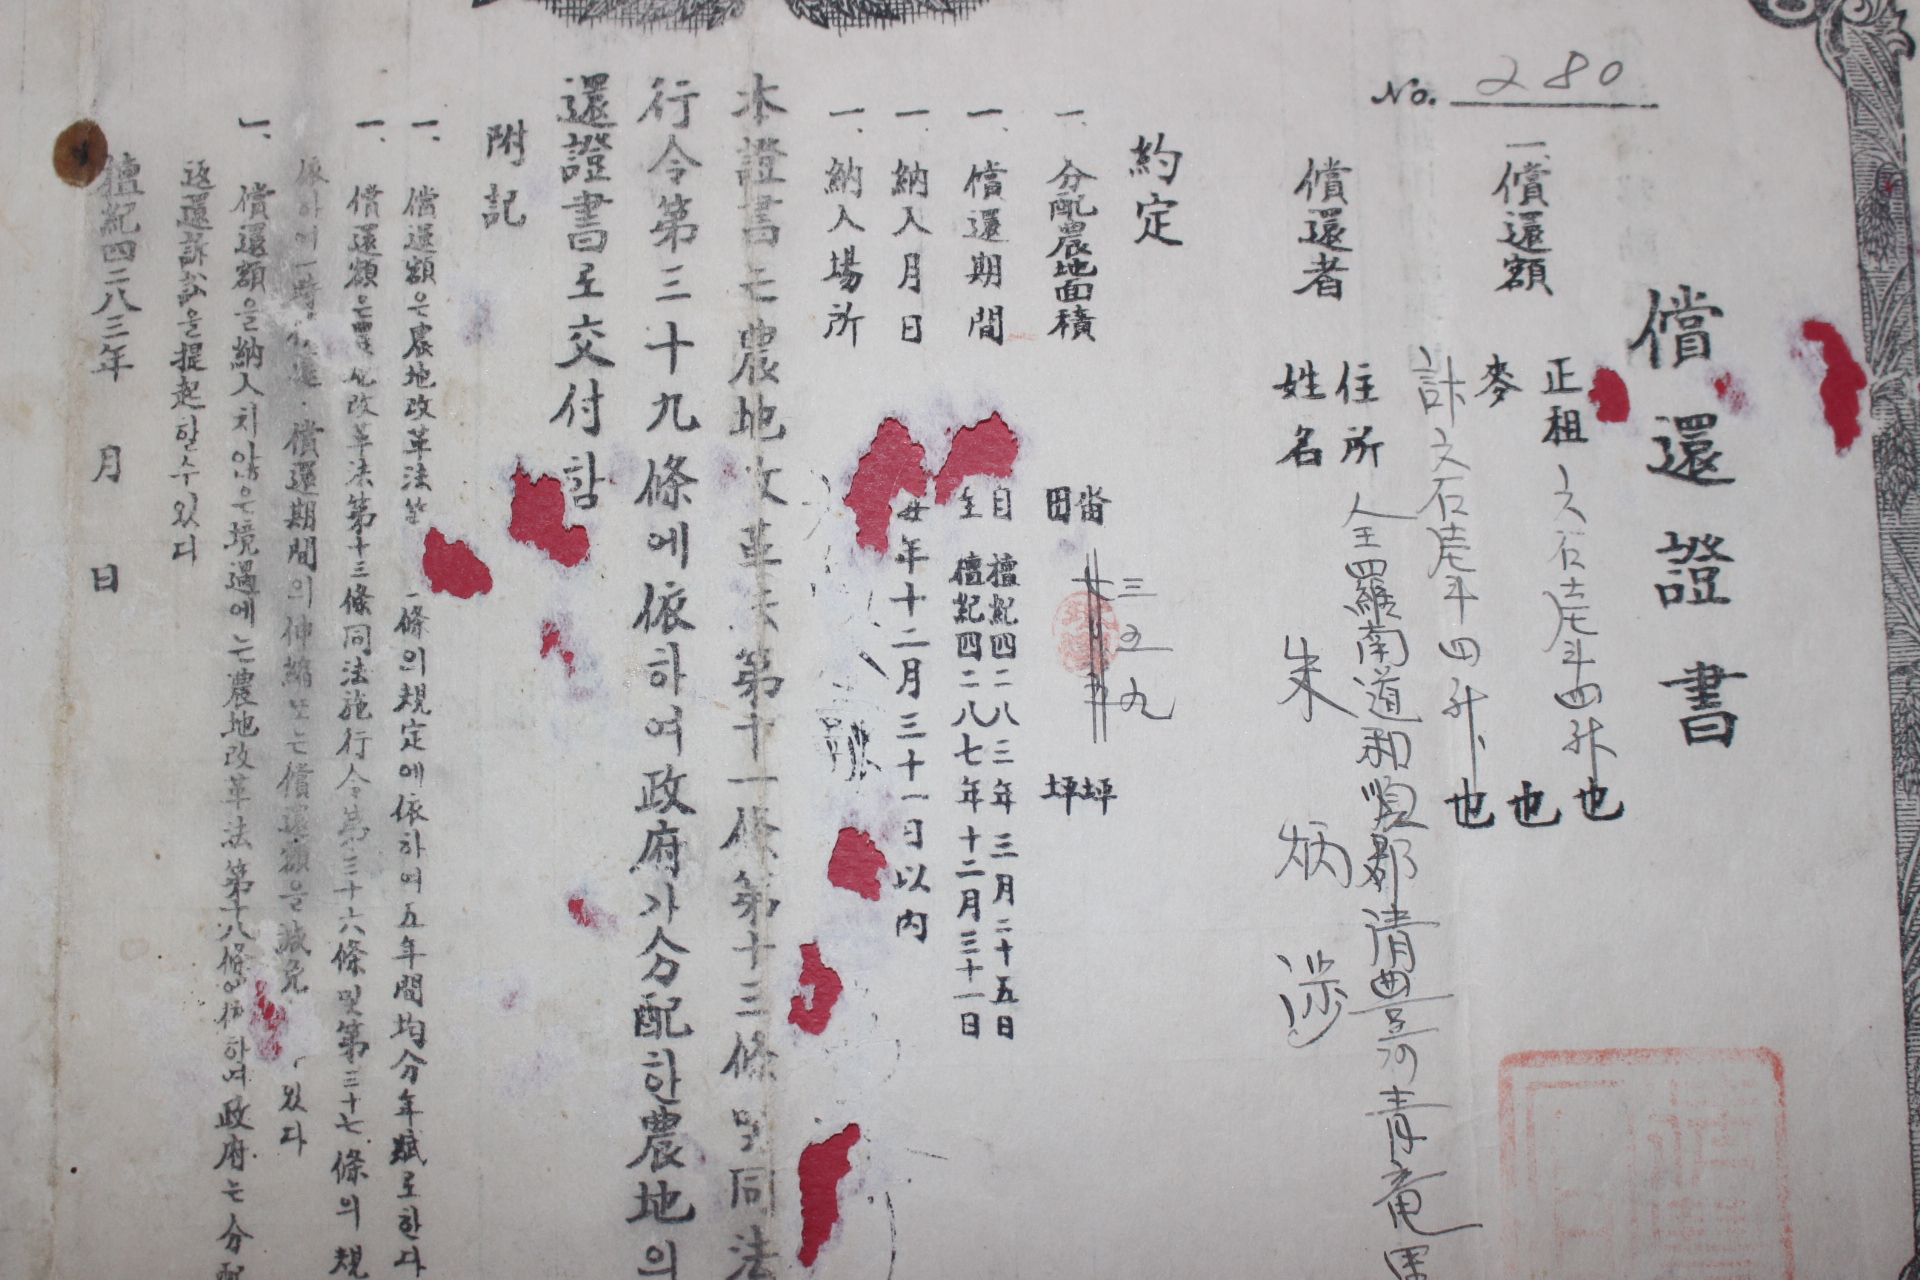 No. 280
償還證書
一、償還額
正租 六石陸斗四升 也
麥 也
計 六石陸斗四升 也
償還者
住所 全羅南道和順郡清豊面
姓名 朱炳
約定
一、分配農地面積
畓 三五九 坪
田 坪
一、償還期間
自 檀紀四二八三年三月二十五日
至 檀紀四二八七年十二月三十一日
一、納入月日
每年十二月三十一日以內
一、納入場所
本證書는農地改革法第十一條第十三條및同法
行令第三十九條에依하여政府가分配한農地의
還證書로交付함
附記
一、償還額은農地改革法第 條의規定에依하여五年間均分年賦로한다
一、償還額은農地改革法第十三條同法施行令第三十六條및第三十七條의規
依하여一時 償還期間의伸縮또는償還額을減免 있다
一、償還額을納入치않은境遇에는農地改革法第十八條에依하여政府는分配
返還訴訟을提起할수있다
檀紀四二八三年 月 日